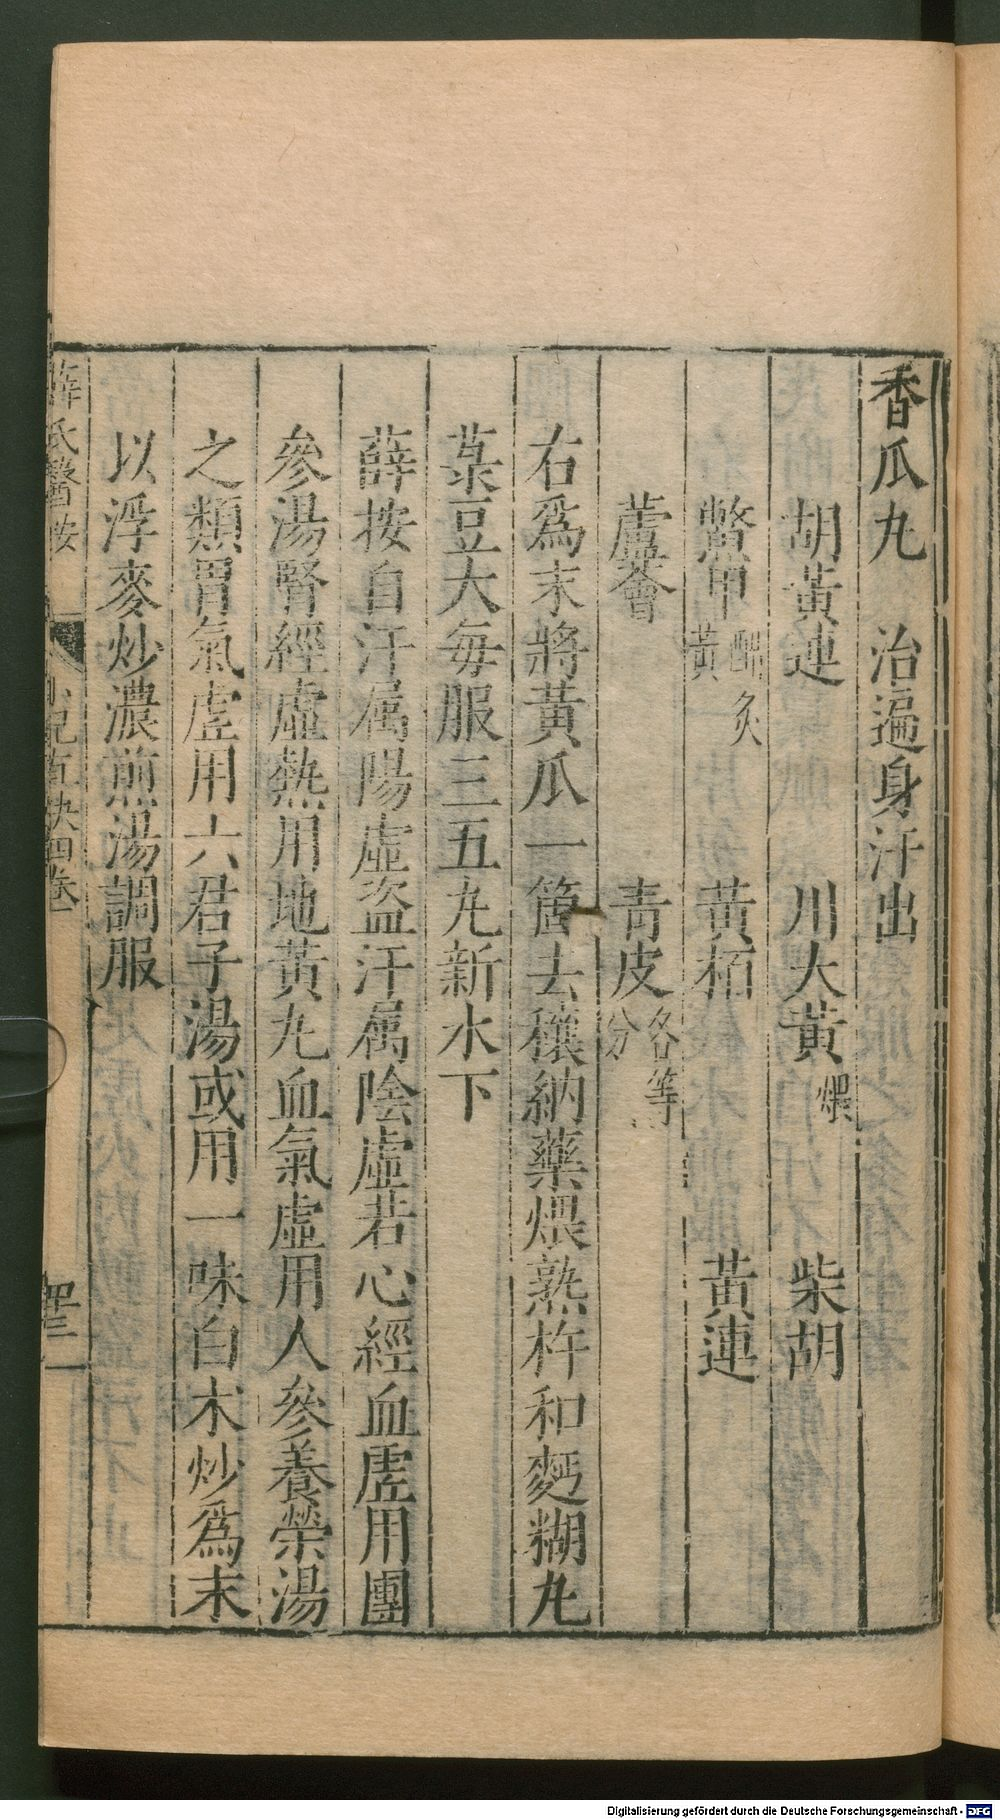 香瓜丸　治遍身汗出
胡黃連　川大黃煨　柴胡
鱉甲醋炙黃　黃栢　黃連
蘆薈　青皮各等分
右爲末將黃瓜一箇去穰納藥煨熟杵和麪糊丸
菉豆大每服三五丸新水下
薛按自汗属陽虛盗汗属陰虛若心經血虛用團
參湯腎經虛熱用地黃丸血氣虛用人參養榮湯
之類胃氣虛用六君子湯或用一味白朮炒爲末
以浮麥炒濃煎湯調服
薛氏醫按　小兒直訣四卷　四二
Digitalisierung gefördert durch die Deutsche Forschungsgemeinschaft - DFG